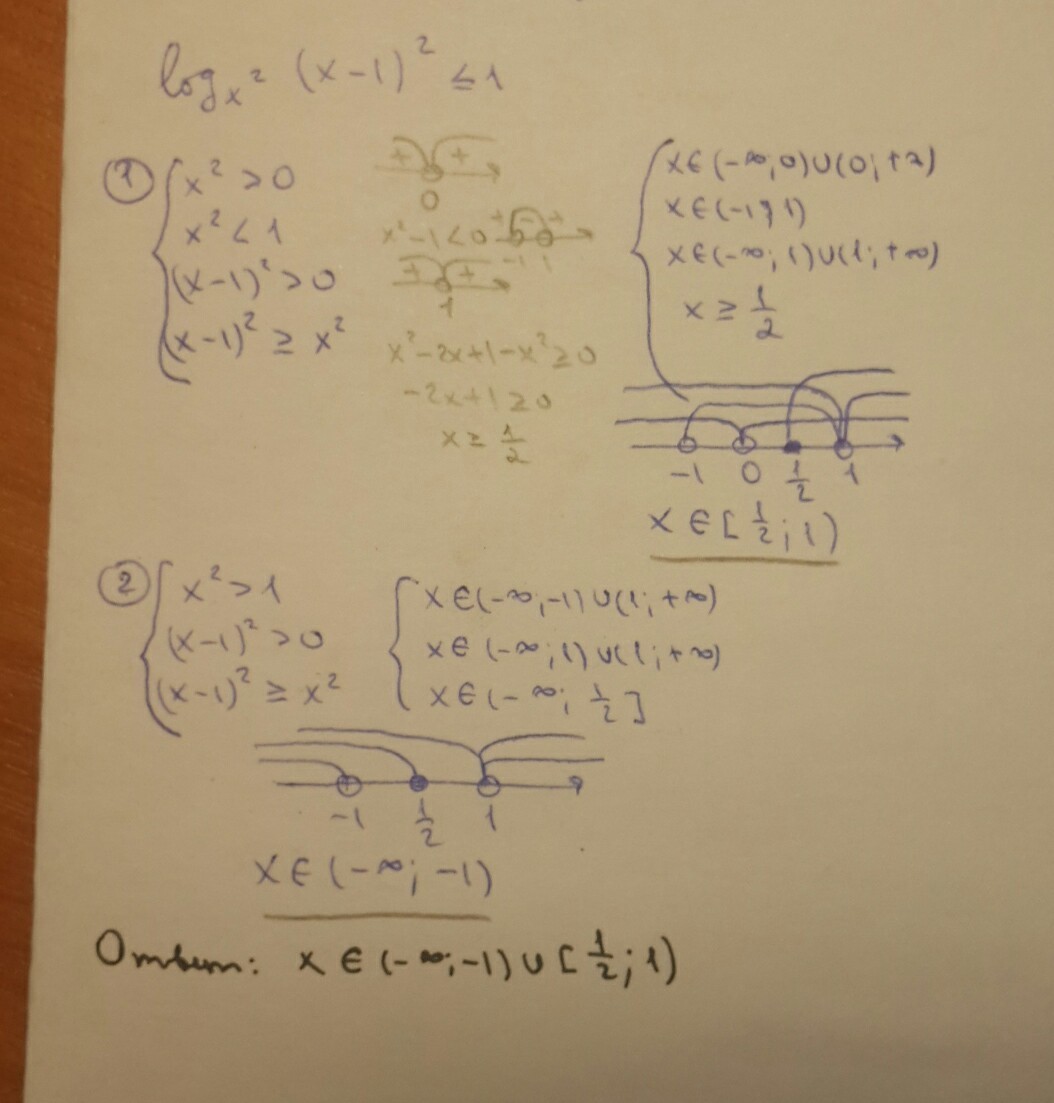 log_{x²} (x-1)² ≤ 1
① { x² > 0
x² < 1
(x-1)² > 0
(x-1)² ≥ x²
+ +
0
x²-1<0 + - +
-1 1
+ +
1
x²-2x+1-x² ≥ 0
-2x+1 ≥ 0
x ≥ 1/2
{ x ∈ (-∞; 0) ∪ (0; +∞)
x ∈ (-1; 1)
x ∈ (-∞; 1) ∪ (1; +∞)
x ≥ 1/2
-1 0 1/2 1
x ∈ [1/2; 1)
② { x² > 1
(x-1)² > 0
(x-1)² ≥ x²
{ x ∈ (-∞; -1) ∪ (1; +∞)
x ∈ (-∞; 1) ∪ (1; +∞)
x ∈ (-∞; 1/2]
-1 1/2 1
x ∈ (-∞; -1)
Ответ: x ∈ (-∞; -1) ∪ [1/2; 1)